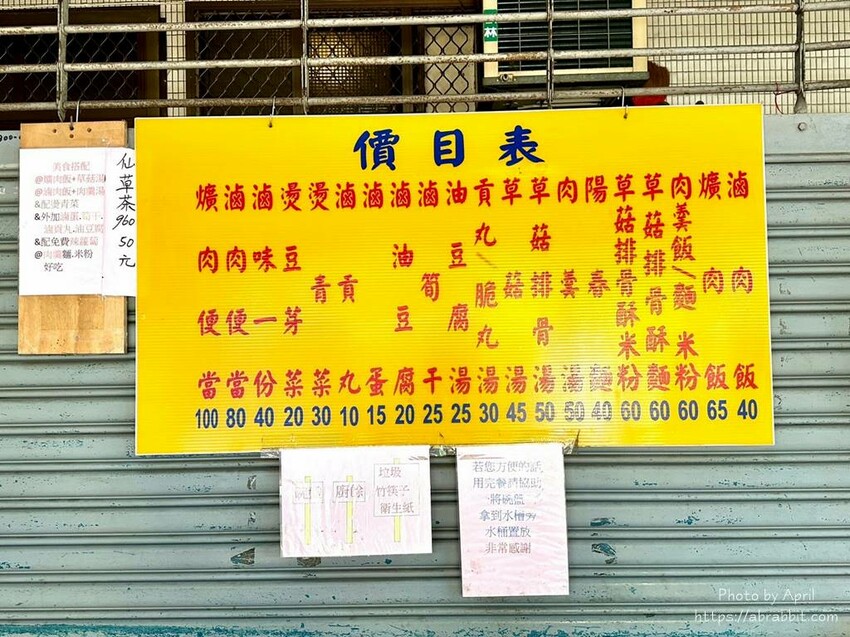 價目表
滷肉飯 40
爌肉飯 65
肉羹飯/麵 米粉 60
草菇排骨酥麵 60
草菇排骨酥米粉 60
陽春麵 40
肉羹湯 50
草菇排骨湯 50
草菇湯 45
貢丸/脆丸湯 30
油豆腐湯 25
滷筍干 25
滷油豆腐 20
滷蛋 15
滷貢丸 10
燙青菜 30
燙豆芽菜 20
滷味一份 40
滷肉便當 80
爌肉便當 100
美食搭配
@爌肉飯+草菇湯
@滷肉飯+肉羹湯
&配燙青菜
&外加滷蛋.筍干.
滷貢丸.油豆腐
&配免費辣蘿蔔
@肉羹麵.米粉
好吃
仙草茶960 50元
垃圾
竹筷子
衛生紙
若您方便的話,
用完餐請協助
將碗盤
拿到水槽旁
水桶置放
非常感謝
Photo by April
https://abrabbit.com/